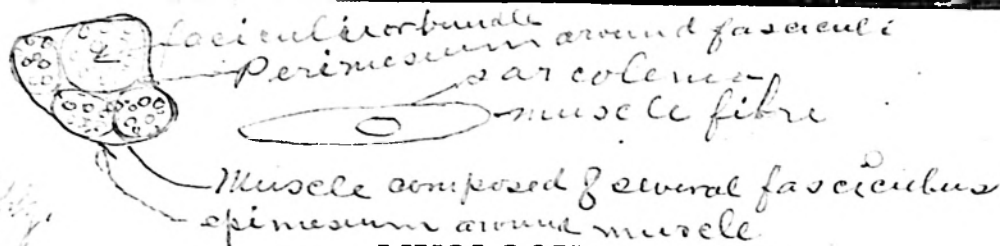 faciculi or bundle
Perimesium around fasciculi
sarcolema
muscle fibre
Muscle composed of several fascicubus
epimesium around muscle